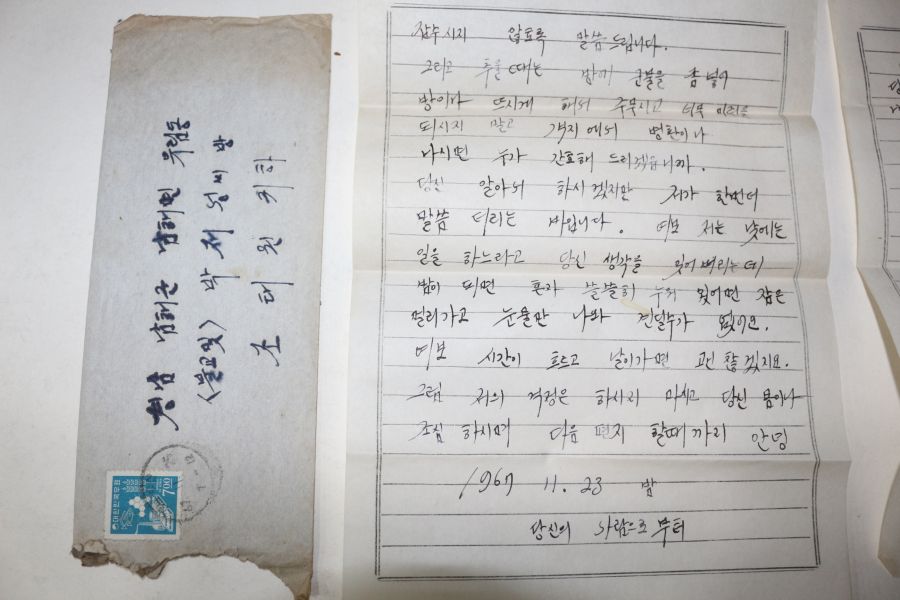 경남 남해군 남해면 유림동
<불교 밑> 박 재 심 씨 방
조 태 원 귀하
대한민국우표
7.00
잡수시지 않도록 말씀드립니다.
그리고 추울때는 밤에 군불을 좀 넣어
방이나 뜨시게 해서 주무시고 너무
피시지 말고 객지에서 병환이나
나시면 누가 간호해 드리겠습니까.
당신 알아서 하시겠지만 저가 한번더
말씀 더리는 바입니다. 여보 저는 낮에는
일을 하느라고 당신 생각을 잊어버리는데
밤이 되면 혼자 쓸쓸히 누워 있어면 잠은
멀리가고 눈물만 나와 견딜수가 없어요.
여보 시간이 흐르고 날이가면 괜찮겠지요.
그럼 저의 걱정은 하시지 마시고 당신 몸이나
조심 하시며 다음 편지 할때까지 안녕
1967 11. 23 밤
당신의 사람으로부터